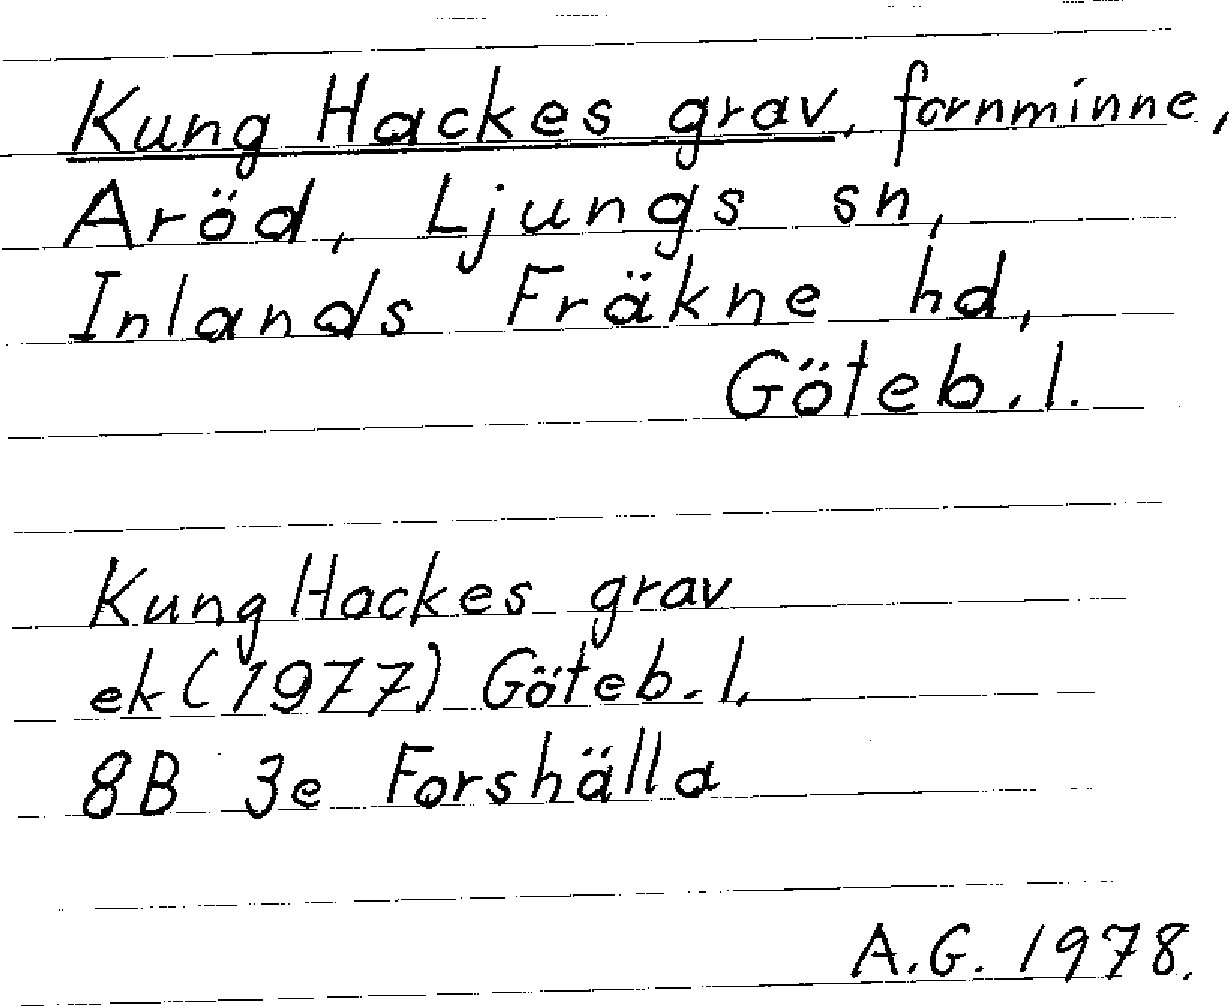 Kung Hackes grav, fornminne,
Aröd, Ljungs sn,
Inlands Fräkne hd,
Göteb. l.
Kung Hackes grav
ek (1977) Göteb. l.
8B 3e Forshälla
A.G. 1978.